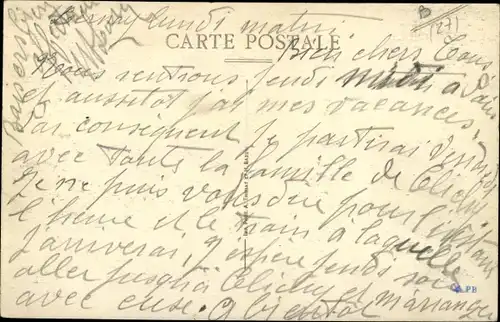 lundi matin
B
(27)
CARTE POSTALE
Bien chers Tous
Nous rentrons jeudi matin à Paris
et aussitôt j'ai mes vacances.
Par conséquent je partirai vendredi
avec toute la famille de Clichy
Je ne puis vous dire pour l'instant
l'heure et le train à laquelle
j'arriverai, J'espère jeudi soir
aller jusqu'à Clichy et m'arranger
avec eux. A bientôt
Baisers
PB